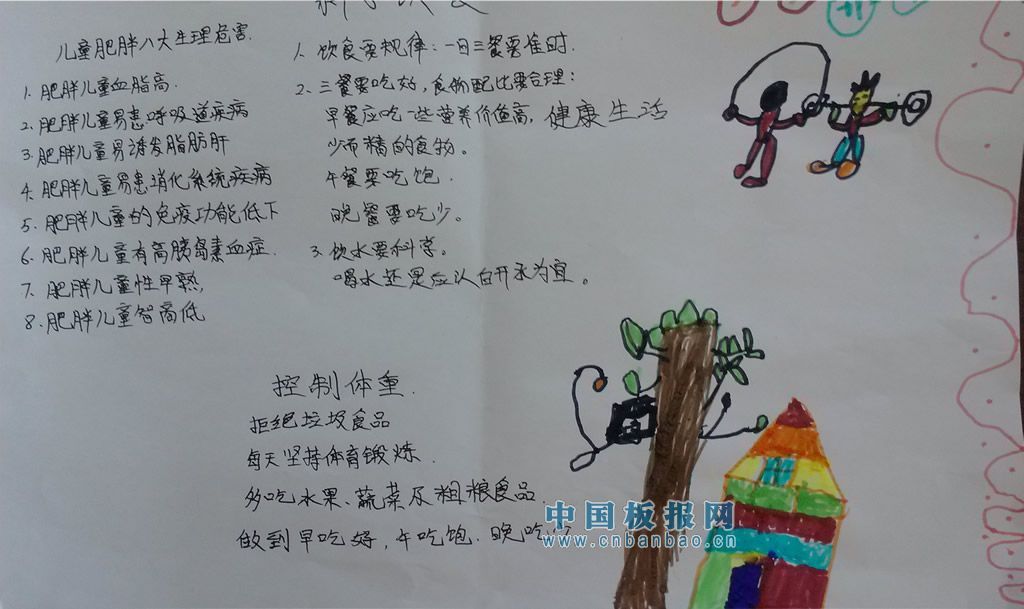 儿童肥胖八大生理危害.
1. 肥胖儿童血脂高.
2. 肥胖儿童易患呼吸道疾病
3. 肥胖儿童易诱发脂肪肝
4. 肥胖儿童易患消化系统疾病
5. 肥胖儿童的免疫功能低下
6. 肥胖儿童有高胰岛素血症.
7. 肥胖儿童性早熟,
8. 肥胖儿童智商低
1. 饮食要规律:一日三餐要准时.
2. 三餐要吃好,食物配比要合理:
早餐应吃一些营养价值高,
少而精的食物。
午餐要吃饱.
晚餐要吃少。
3. 饮水要科学。
喝水还是应以白开水为宜。
健康生活
控制体重.
拒绝垃圾食品
每天坚持体育锻炼.
多吃水果、蔬菜及粗粮食品.
做到早吃好,午吃饱.晚吃
中国板报网
www.cnbanbao.cn